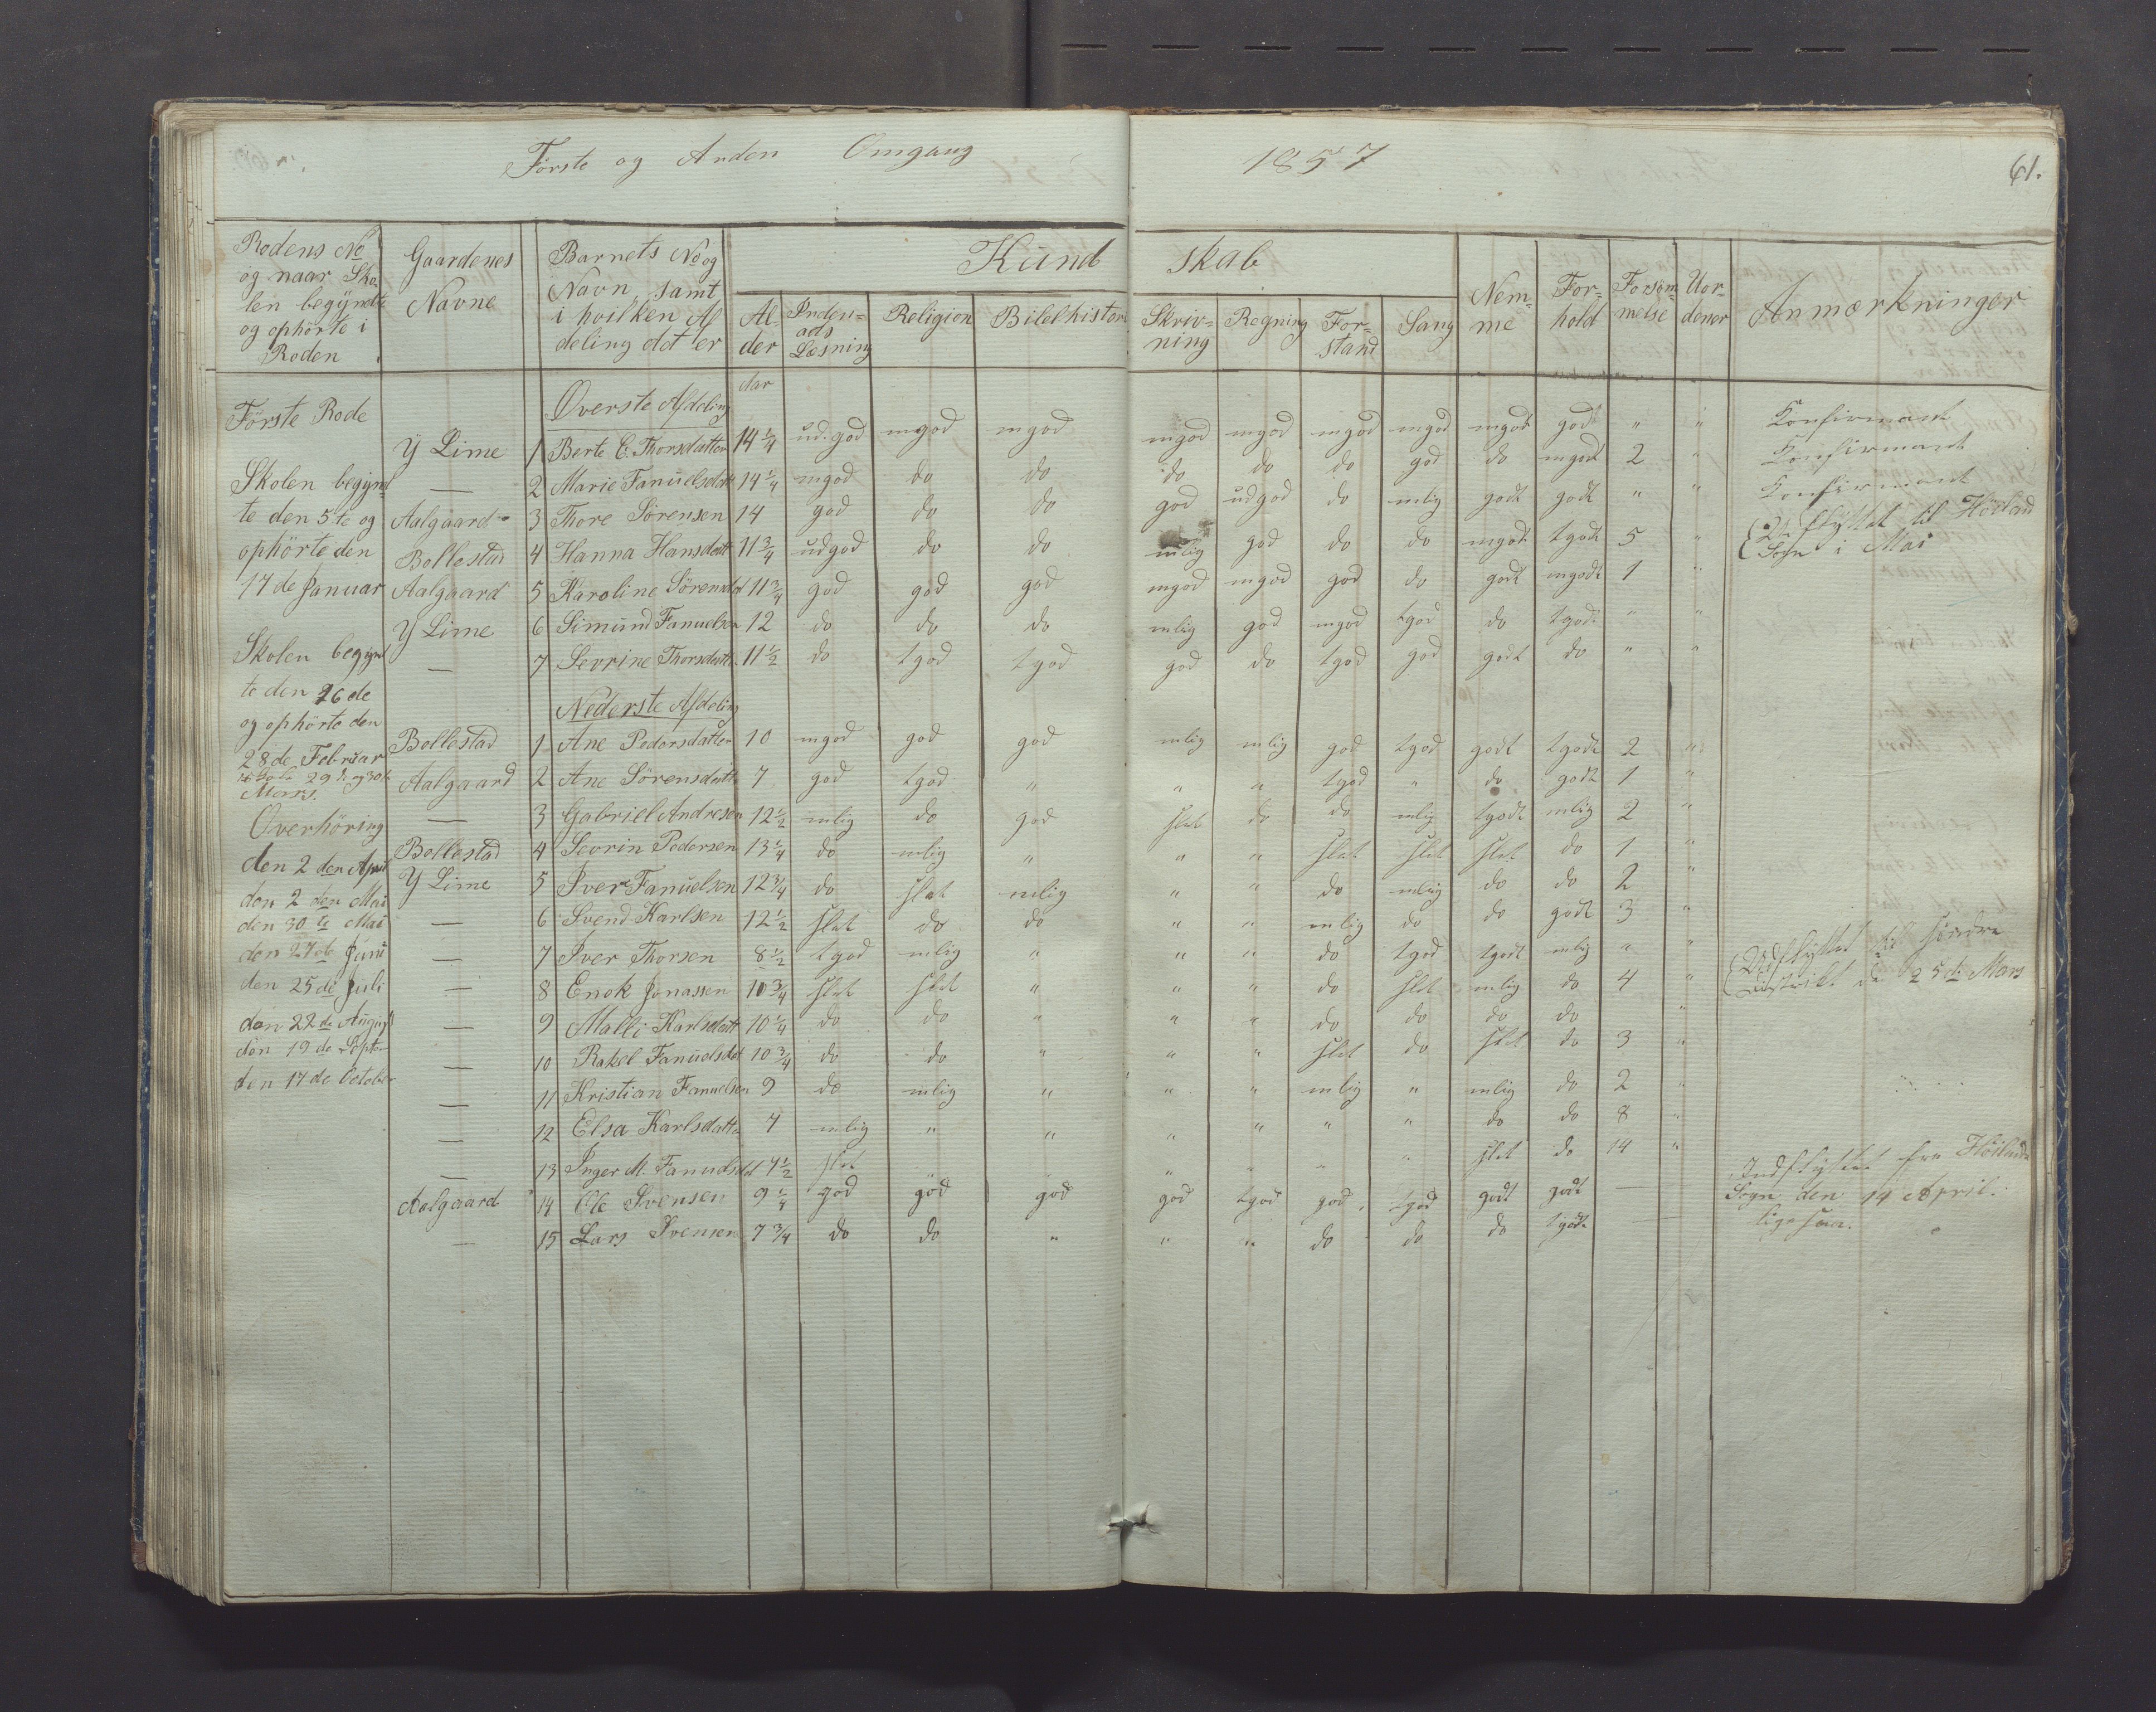 Første og Anden Omgang 1857 61.
Rodens No og naar Sko- len begyndte og ophörte i Roden
Gaardenes Navne
Barnets No og Navn, samt i hvilken Af deling det er
Kund skab
Al- der
Inden- ads Læsning
Religion
Bibelhistori
Skriv- ning
Regning
For- stand
Sang
Nem- me
For- hold
Forsöm- melse
Uor- dener
Anmærkninger
Förste Rode
Överste Afdeling Aar
Y Lime 1 Berte E. Thorsdatter 14 1/4 ud.god mgod mgod mgod mgod mgod mgod mgodt godt " " Konfirmant
— 2 Marie Fanuelsdatt 14 1/4 mgod do do do do do god do mgodt 2 " Konfirmant
Aalgaard 3 Thore Sörensen 14 god do do god udgod do mlig godt godt " " Konfirmant
Bollestad 4 Hanna Hansdatt 11 3/4 udgod do do mlig god do do mgodt tgodt 5 " Udflyttet til Höiland Sogn i Mai
Aalgaard 5 Karoline Sörensdat 11 3/4 god god god mgod mgod god do godt mgodt 1 "
Y Lime 6 Simund Fanuelsen 12 do do do mlig god mgod tgod do tgodt " "
— 7 Sevrine Thorsdatt 11 1/2 do tgod tgod god do tgod god godt do " "
Skolen begynd-
te den 5te og
ophörte den
17de Januar
Skolen begynd
te den 26de
og ophörte den
28de Februar
29de og 30te
Mars.
Overhöring
den 2den April
den 2den Mai
den 30te Mai
den 27de Juni
den 25de Juli
den 22de August
den 19de Septe-
den 17de October
Nederste Afdeling
Bollestad 1 Ane Pedersdatter 10 mgod god god mlig mlig god tgod godt tgodt 2 "
Aalgaard 2 Ane Sörensdatt 7 god tgod " " " tgod " do godt 1 "
— 3 Gabriel Andresen 12 1/2 mlig do god slet do do mlig tgodt mlig 2 "
Bollestad 4 Sevrin Pedersen 13 1/4 do mlig " " " slet slet slet do 1 "
Y Lime 5 Iver Fanuelsen 12 3/4 do slet mlig " " do mlig do do 2 "
— 6 Svend Karlsen 12 1/2 slet do do " " mlig do do godt 3 "
— 7 Iver Thorsen 8 1/2 tgod mlig " " " do tgod tgodt mlig " "
— 8 Enok Jonassen 10 3/4 slet slet " " " do slet mlig do 4 " Udflyttet til söndre Distrikt de 25de Mars
— 9 Malli Karlsdatt 10 1/4 do do " " " do do do do "
— 10 Rakel Fanuelsdat 10 3/4 do do " " " slet do slet do 3 "
— 11 Kristian Fanuelsen 9 do mlig " " " mlig " mlig do 2 "
— 12 Elsa Karlsdatte 7 mlig " " " " " " do do 8 "
— 13 Inger M. Fanuelsdat 7 1/2 slet " " " " " slet do 14 "
Aalgaard 14 Ole Svensen 9 1/4 god god god god tgod god tgod godt godt — Indflyttet fra Höilands Sogn den 14 April.
— 15 Lars Svensen 7 3/4 do do " " " do do do tgodt — ligesaa.